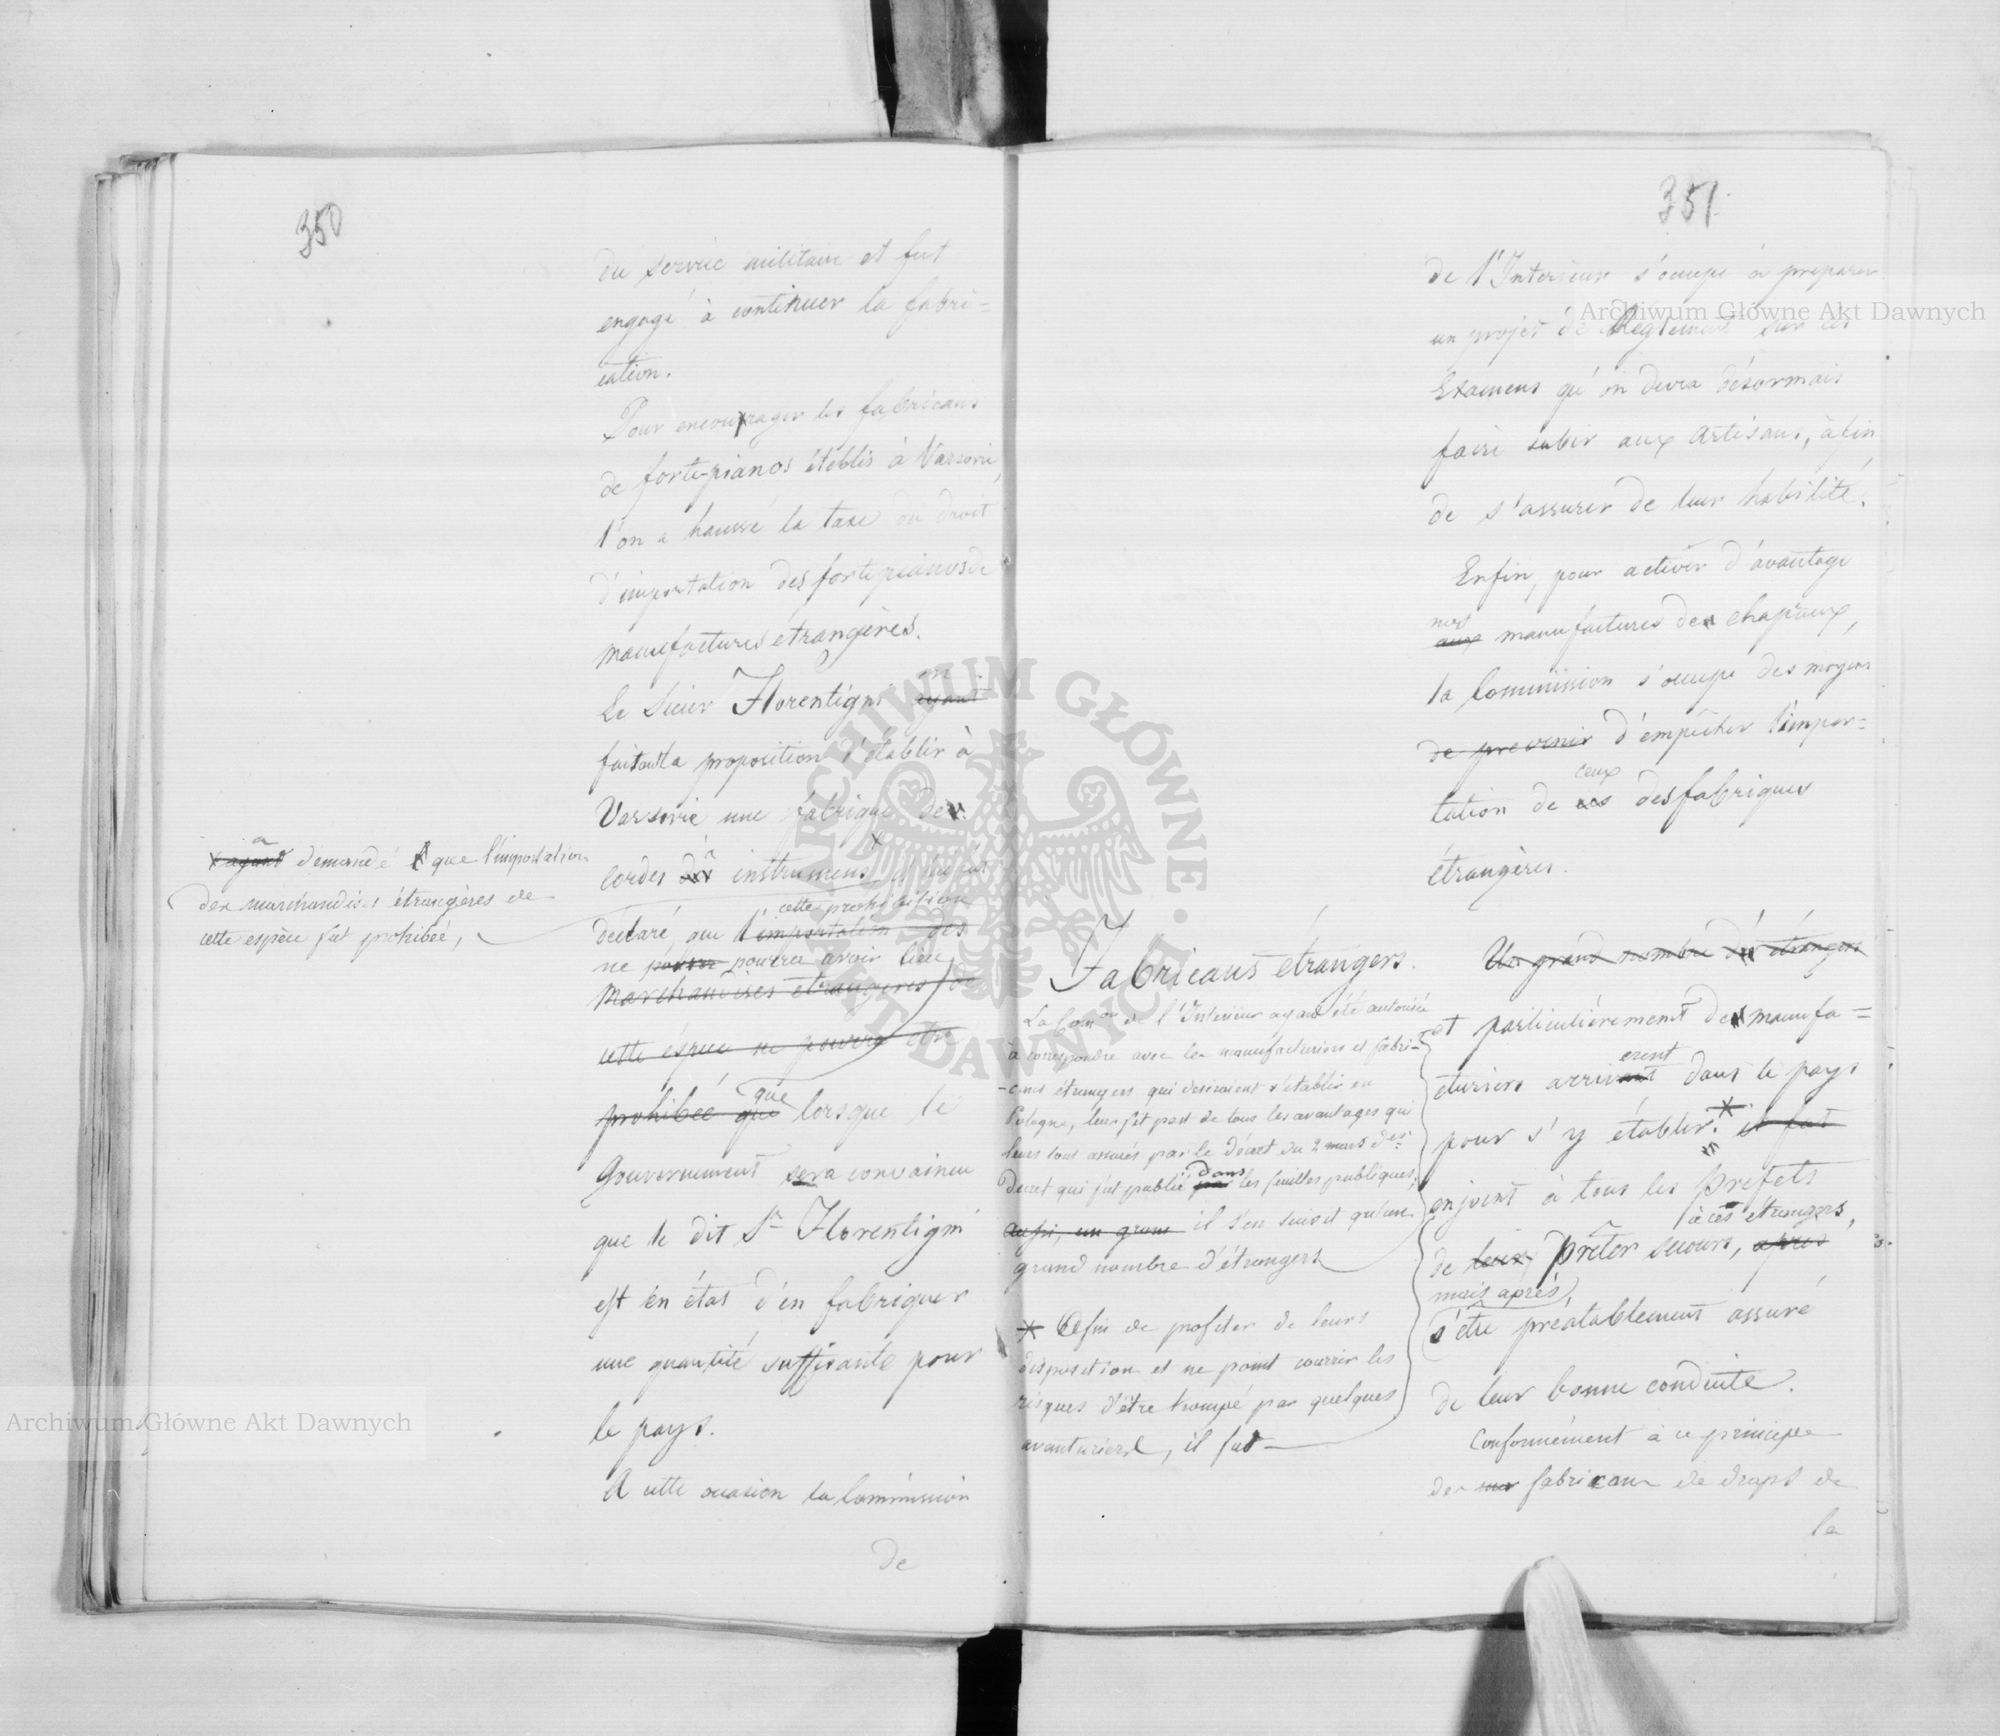 350
du service militaire et fut
engagé à continuer la fabri=
cation.
Pour encourager les fabricans
de forte-pianos établis à Varsovie,
l'on a haussé la taxe du droit
d'importation des fortepianos de
manufactures étrangères.
Le Sieur Florentigni ayant
en
faisant la proposition d'établir à
Varsovie une fabrique de
cordes à instrumens, il lui fut
cette prohibition
déclaré, que l'importation des
ne pourra avoir lieu
marchandises étrangères de
cette éspèce ne pourra être
prohibée que que lorsque le
Gouvernement sera convaincu
que le dit Sr Florentigni
est en état d'en fabriquer
une quantité suffisante pour
le pays.
A cette occasion la Commission
de
ayant a demandé que l'importation
des marchandises étrangères de
cette espèce fut prohibée,
351.
de l'Interieur s'occupe à preparer
un projet de Reglement sur les
Examens qu'on devra désormais
faire subir aux Artisans, àfin
de s'assurer de leur habilité.
Enfin, pour activer d'avantage
nos
aux manufactures de chapeaux,
la Commission s'occupe des moyens
de prevenir d'empêcher l'impor=
ceux
tation de des fabriques
étrangères.
Fabricans étrangers.
Un grand nombre des étrangers
et particulièrement des manufa=
erent
cturiers arrivant dans le pays
pour s'y établir. * il fut
enjoint à tous les Prefets
à ces étrangers,
de leur prêter secours, après
mais après,
s'être préalablement assuré
de leur bonne conduite.
Conformément à ce principe
des fabricans de draps de
la
La Comon de l'Interieur ayant été autorisée
à correspondre avec les manufacturiers et fabri=
-cans étrangers qui desiraient s'etablir en
Pologne, leur fit part de tous les avantages qui
leurs sont assurés par le Décret du 2 mars
Decret qui fut publié par dans les feuilles publiques,
aussi, un grand il s'en suivit qu'un
grand nombre d'étrangers
* Afin de profiter de leurs
disposition et ne point courrir les
risques d'être trompé par quelques
avanturiers, il fut
Archiwum Główne Akt Dawnych
Archiwum Główne Akt Dawnych
ARCHIWUM GŁÓWNE AKT DAWNYCH